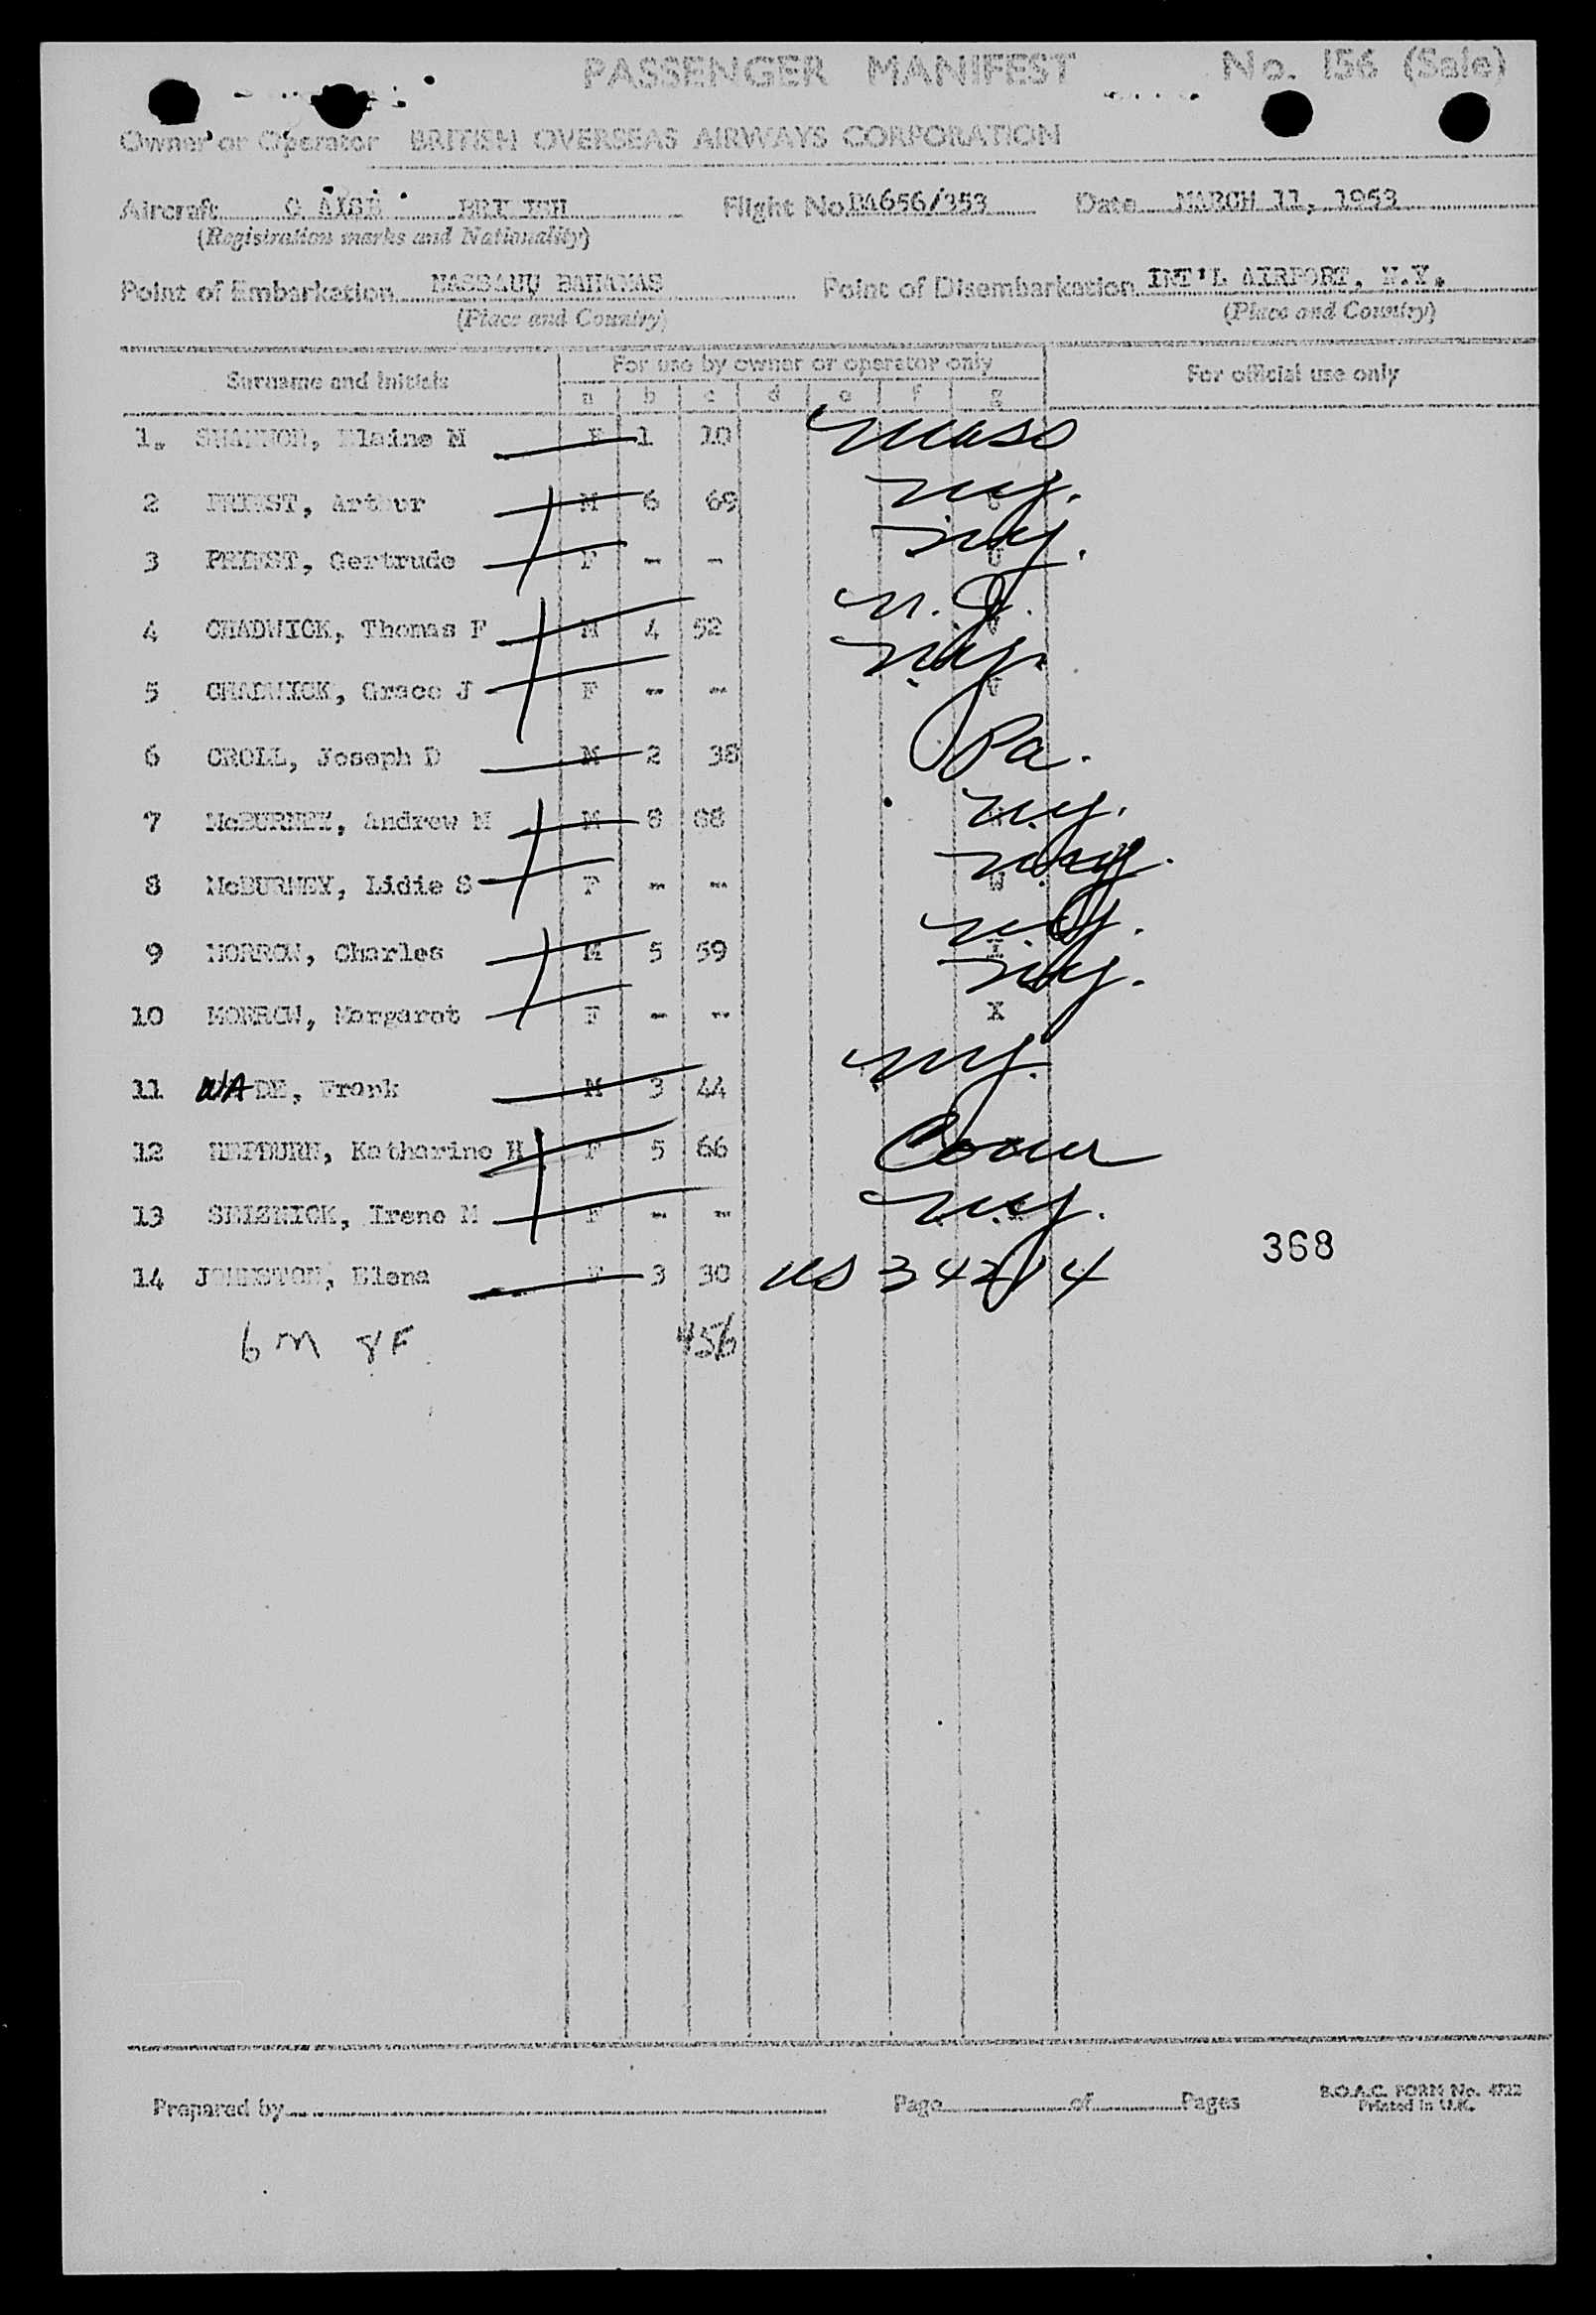 PASSENGER MANIFEST No. 156 (Sale)
Owner or Operator BRITISH OVERSEAS AIRWAYS CORPORATION
Aircraft Flight No. BA656/353 Date MARCH 11, 1953
(Registration marks and Nationality)
Point of Embarkation NASSAU, BAHAMAS Point of Disembarkation INT'L AIRPORT, N.Y.
(Place and Country) (Place and Country)
Surname and Initials For use by owner or operator only For official use only
a b c d e f g
1. SHANNON, Elaine M F 1 10 Mass
2 PRIEST, Arthur M 6 69 N.Y.
3 PRIEST, Gertrude F - - N.Y.
4 CHADWICK, Thomas F M 4 52 N.J. V
5 CHADWICK, Grace J F - - N.Y. V
6 CROLL, Joseph D M 2 38 Pa.
7 McBURNEY, Andrew M M 8 88 N.Y.
8 McBURNEY, Lidie S F - - W
9 MORROW, Charles M 5 59 N.Y.
10 MORROW, Margaret F - - N.Y. X
11 WADE, Frank M 3 44 N.Y.
12 HEPBURN, Katharine H F 5 66 Conn
13 SELZNICK, Irene M F - - N.Y.
14 JOHNSTON, Elena F 3 30 US 368
6 M 8 F 456
Prepared by Page of Pages B.O.A.C. FORM No. 4722
Printed in U.K.